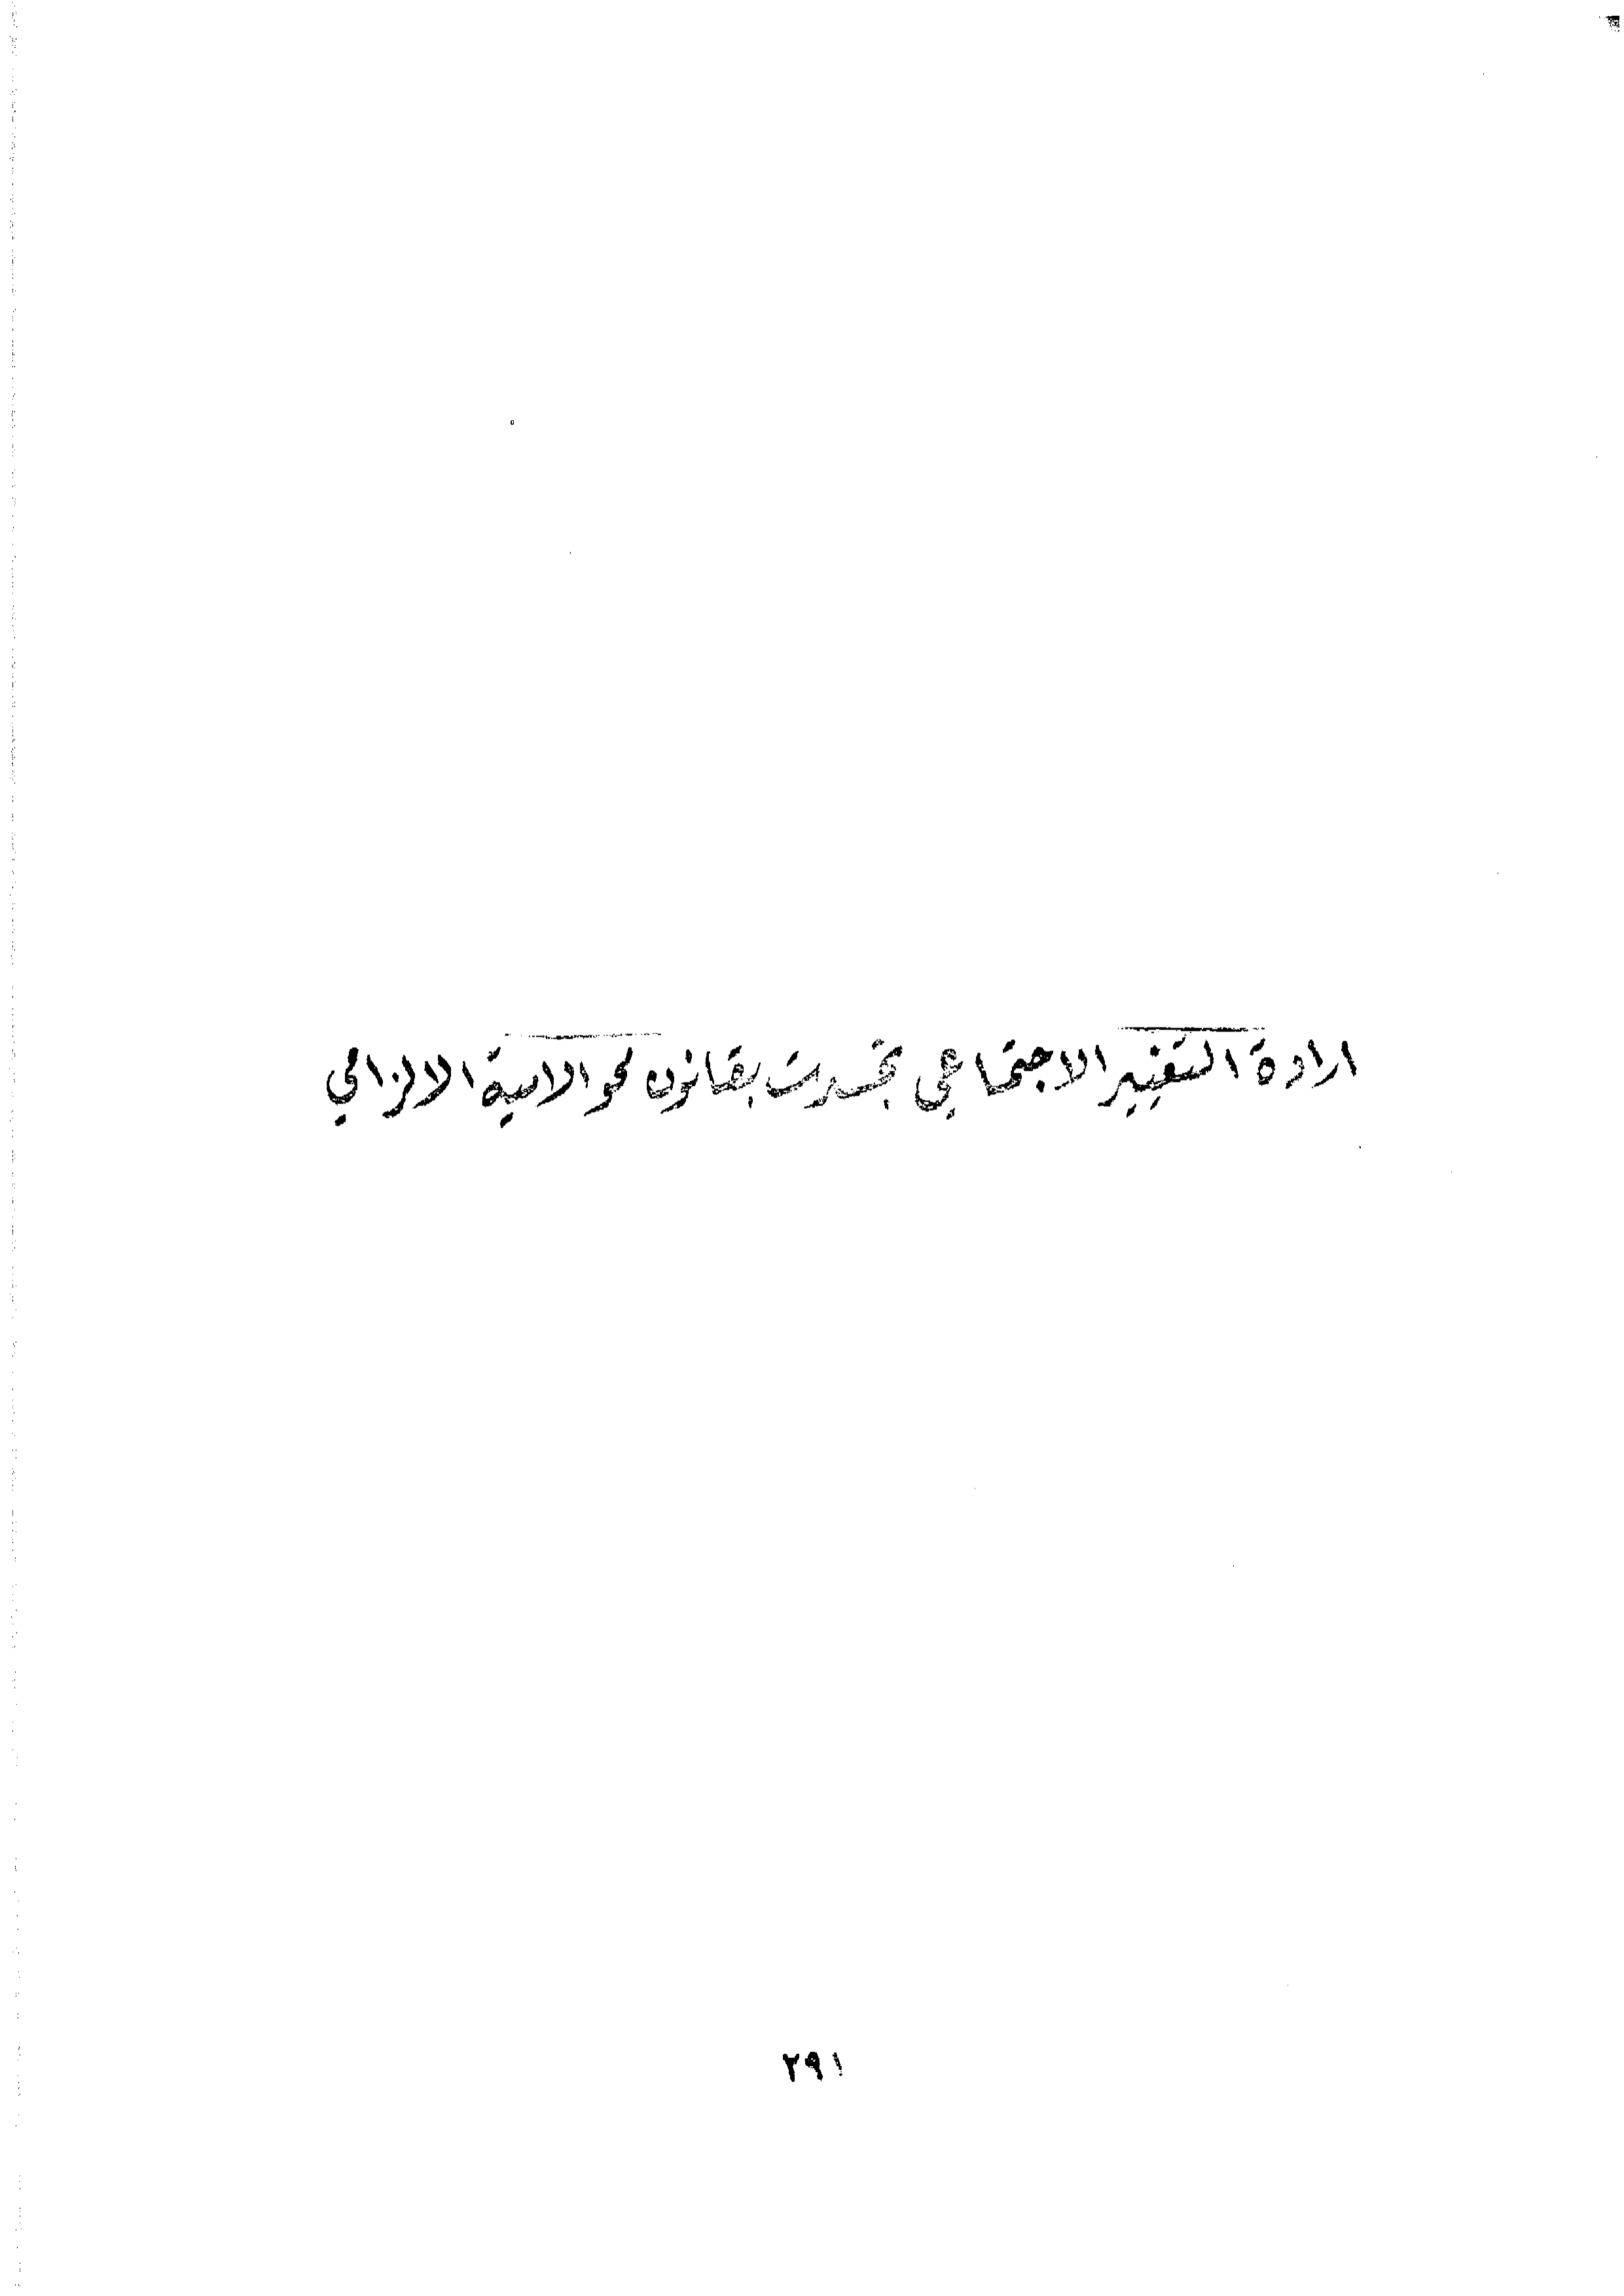 ارادة التغيير الاجتماعي تجسدت بقانون محو الامية الالزامي
٢٩١